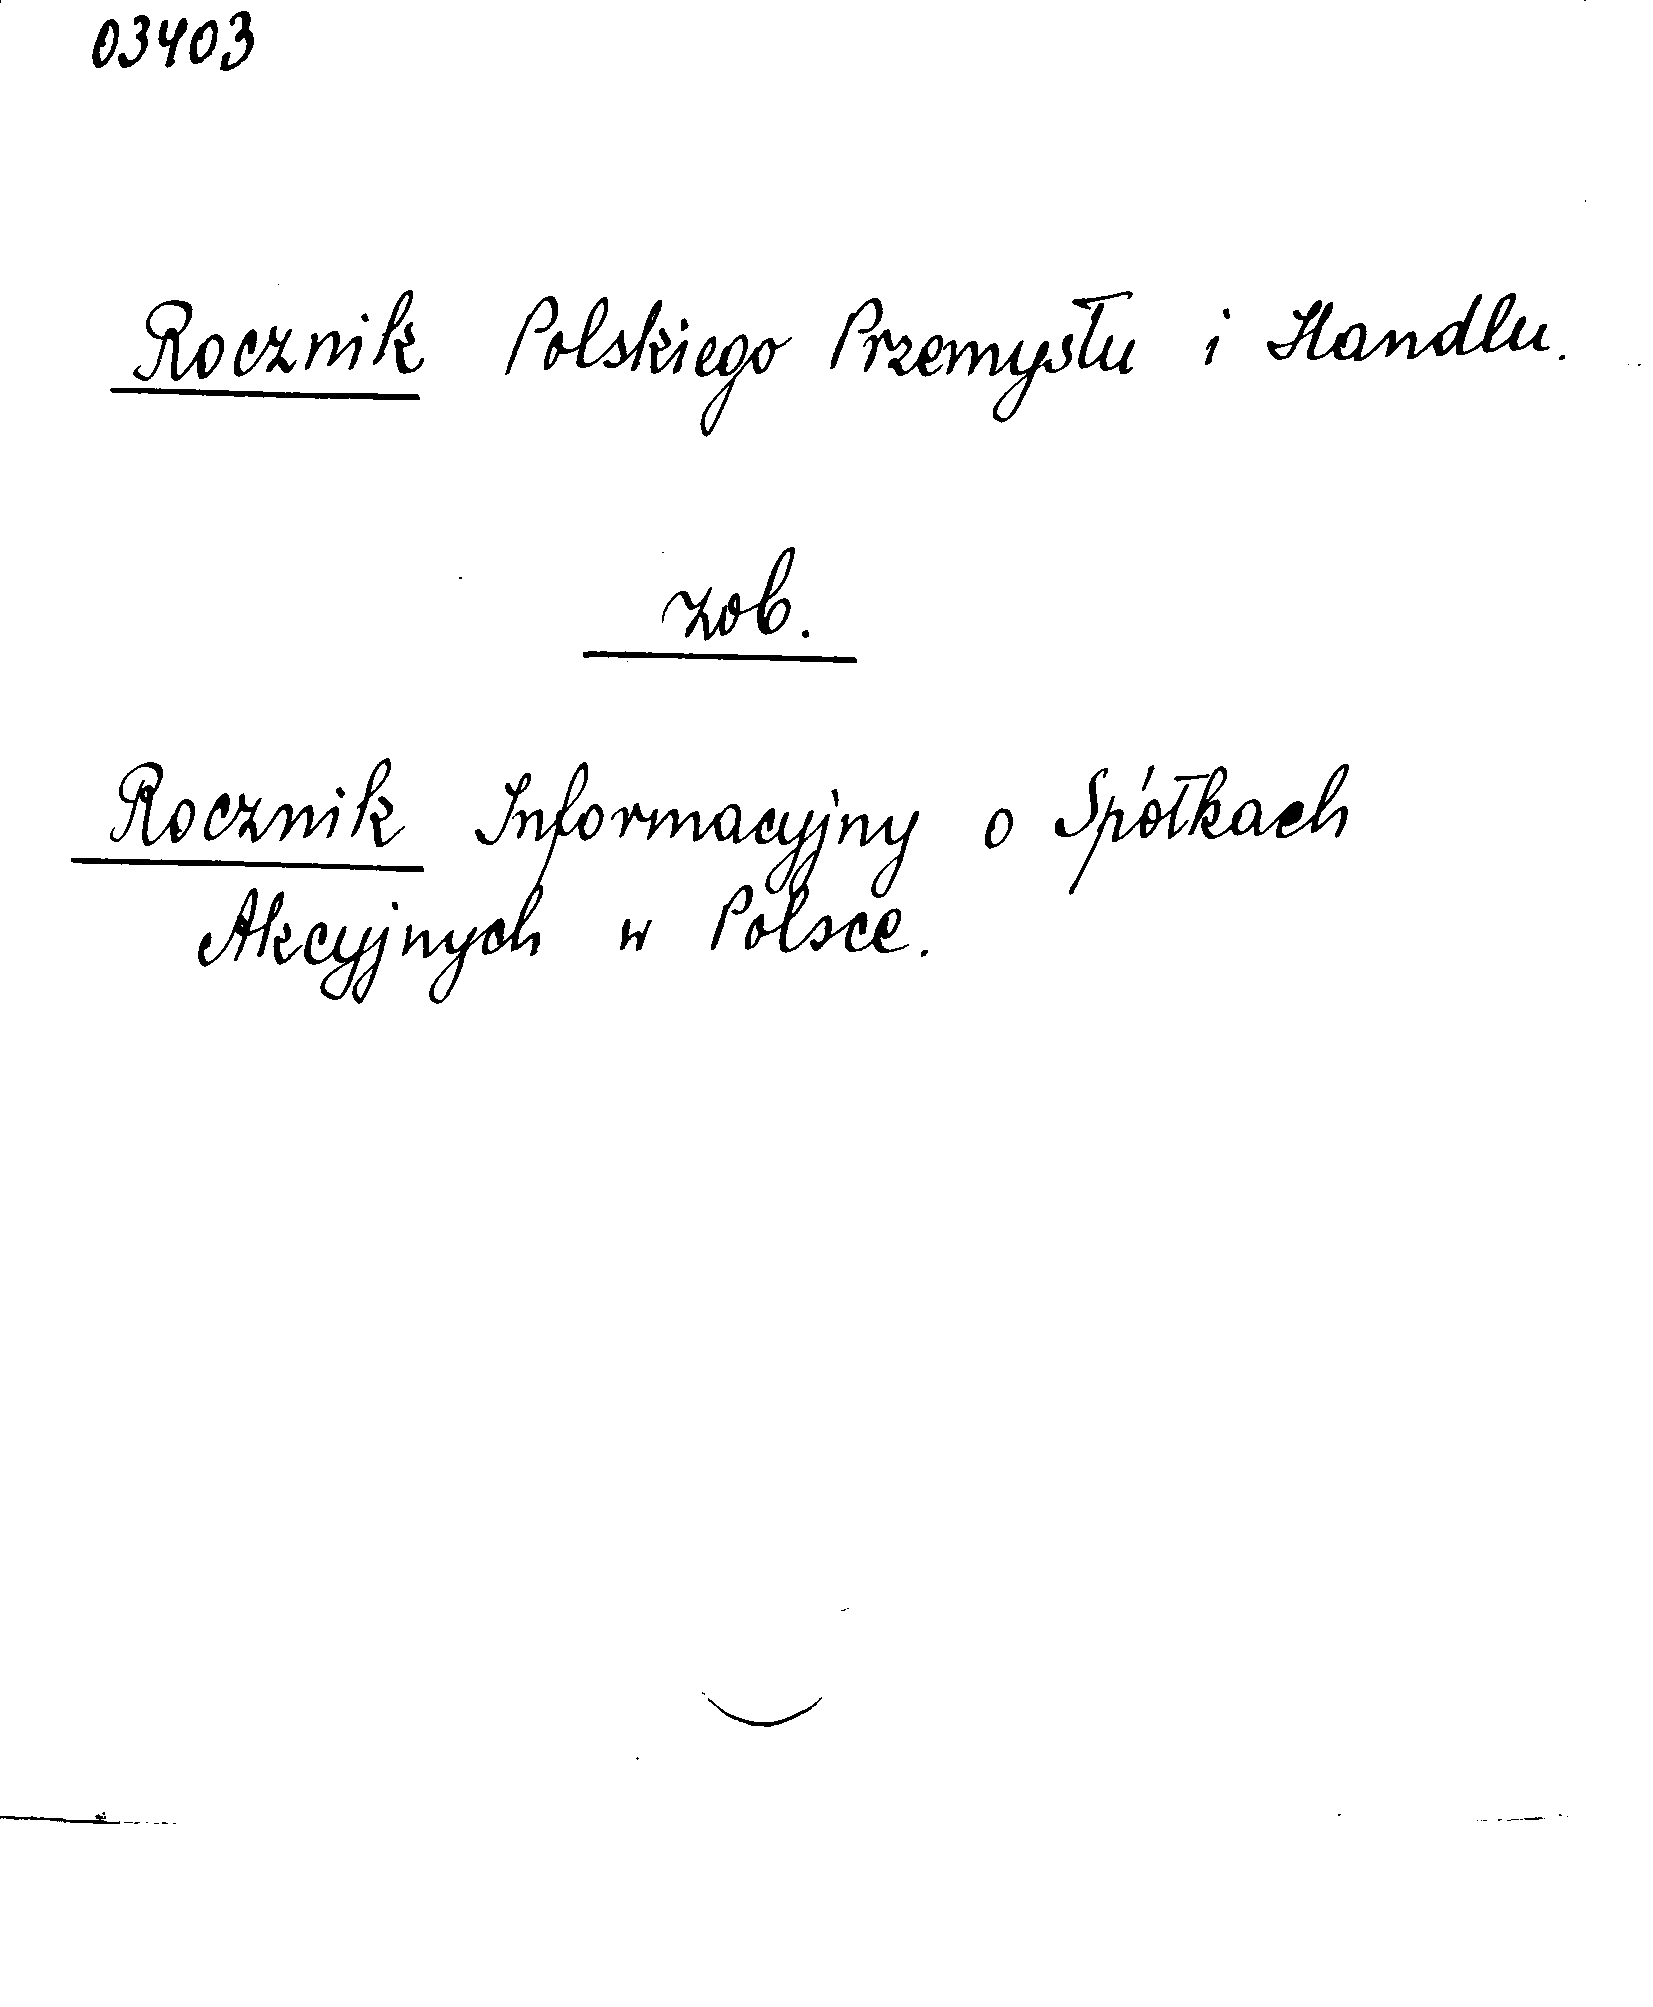 03403
Rocznik Polskiego Przemysłu i Handlu.
zob.
Rocznik Informacyjny o Spółkach
Akcyjnych w Polsce.